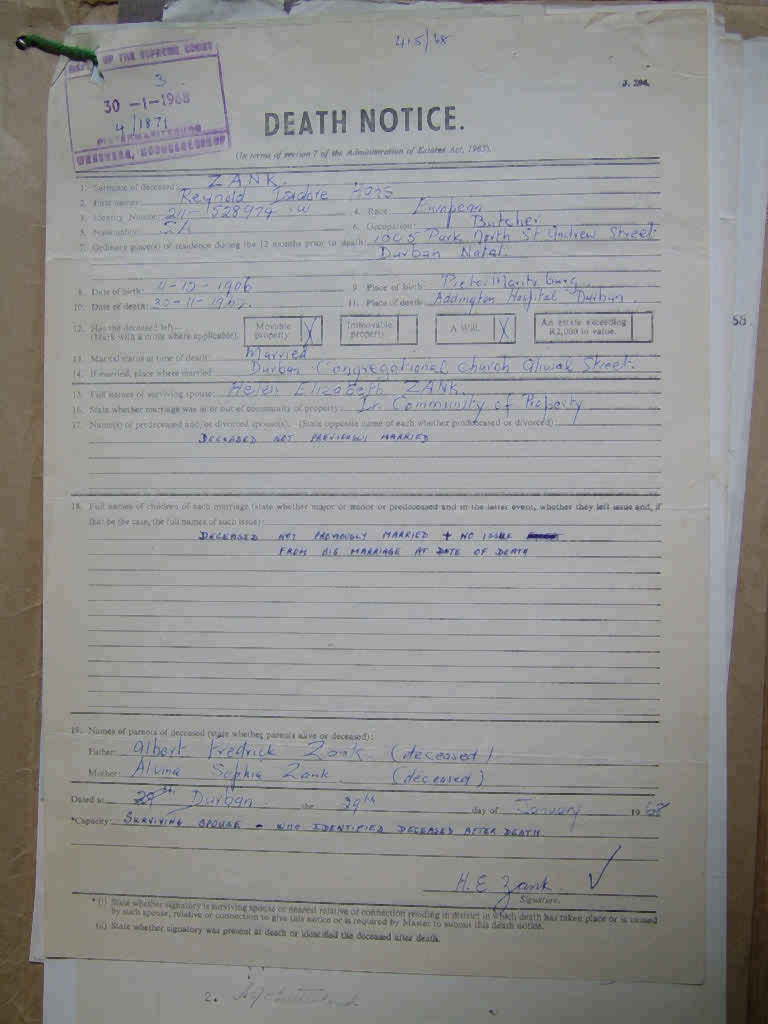 415/68
J. 294.
OF THE SUPREME COURT
3
30 -1-1968
4/1871
DEATH NOTICE.
(In terms of section 7 of the Administration of Estates Act, 1965).
1. Surname of deceased: ZANK.
2. First names: Reynold Isadore Hans
3. Identity Number: 211- 528974 W 4. Race: European
5. Nationality: S/A 6. Occupation: Butcher
7. Ordinary place(s) of residence during the 12 months prior to death: 1005 Park North St Andrew Street
Durban Natal.
8. Date of birth: 4-12-1906 9. Place of birth: Pietermaritzburg
10. Date of death: 30-11-1967. 11. Place of death: Addington Hospital Durban.
12. Has the deceased left— Movable property X Immovable property A Will X An estate exceeding R2,000 in value.
(Mark with a cross where applicable).
13. Marital status at time of death: Married
14. If married, place where married: Durban Congregational Church Aliwal Street.
15. Full names of surviving spouse: Helen Elizabeth ZANK.
16. State whether marriage was in or out of community of property: In Community of Property
17. Name(s) of predeceased and/or divorced spouse(s). (State opposite name of each whether predeceased or divorced):
DECEASED NOT PREVIOUSLY MARRIED
18. Full names of children of each marriage (state whether major or minor or predeceased and in the latter event, whether they left issue and, if
that be the case, the full names of such issue):
DECEASED NOT PREVIOUSLY MARRIED + NO ISSUE
FROM HIS MARRIAGE AT DATE OF DEATH
19. Names of parents of deceased (state whether parents alive or deceased):
Father: Albert Fredrick Zank. (deceased)
Mother: Alvina Sophia Zank (deceased)
Dated at Durban the 29th day of January 1968
*Capacity: SURVIVING SPOUSE - WHO IDENTIFIED DECEASED AFTER DEATH
H.E Zank.
Signature.
* (i) State whether signatory is surviving spouse or nearest relative or connection residing in district in which death has taken place or is caused
by such spouse, relative or connection to give this notice or is required by Master to submit this death notice.
(ii) State whether signatory was present at death or identified the deceased after death.
58.
2.